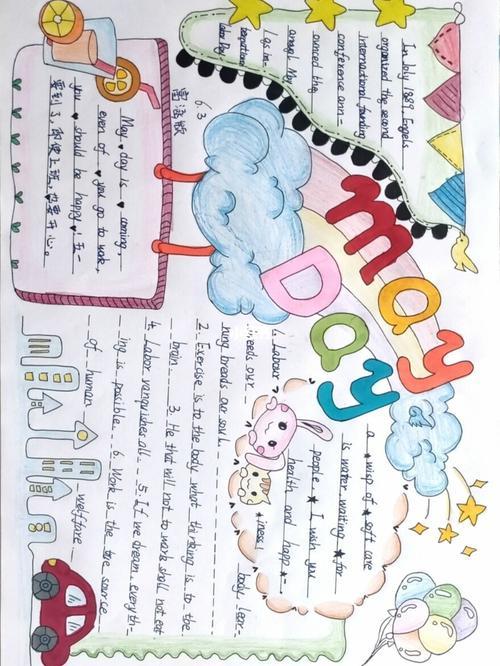 May
Day
In July 1889, Engels
organized the second
International founding
conference ann-
ounced the
annugh May
1 as in-
Labor Day.
6.3
May ♥ day is ♥ coming,
even if ♥ you go to work,
you ♥ should be happy ♥ 五一
要到了,即使上班,也要开心。
a ★ wisp of ★ soft care
is water waiting ★ for
people ★ I wish you
health and happ ★-
★ iness!
1. Labour
needs our
body, lear-
ning breads our soul.
2. Exercise is to the body what thinking is to the
brain 3. He that will not to work shall not eat
4. Labor vanquishes all. 5. If we dream, everyth-
ing is possible. 6. Work is the true source
of human welffare